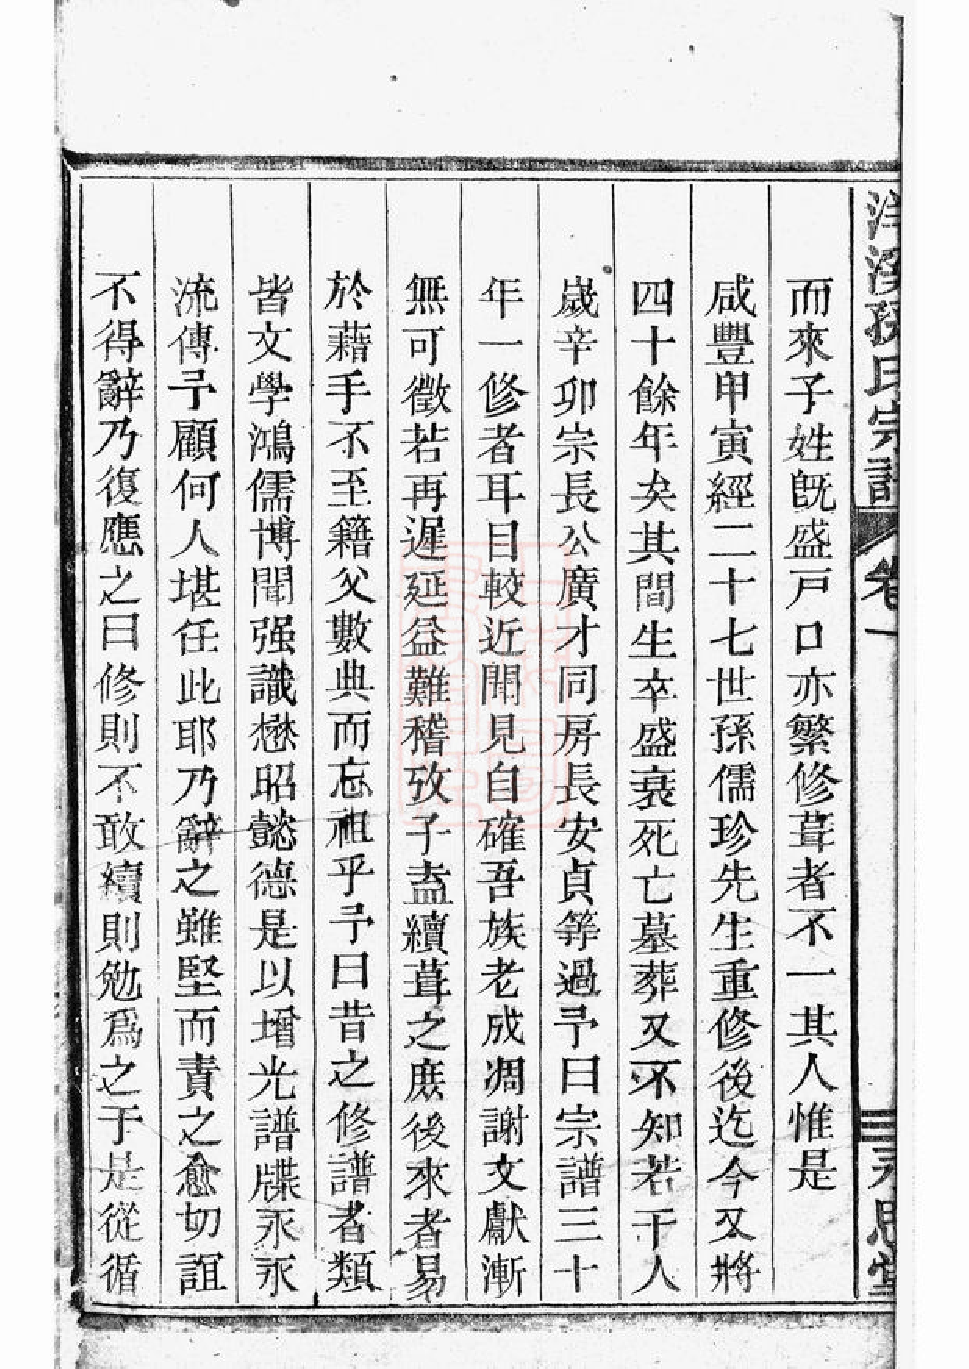 洋溪孫氏宗譜 卷一 三 永思堂
而來子姓旣盛戸口亦繁修葺者不一其人惟是
咸豐甲寅經二十七世孫儒珍先生重修後迄今又將
四十餘年矣其間生卒盛衰死亡墓葬又不知若干人
嵗辛卯宗長公廣才同房長安貞等過予曰宗譜三十
年一修者耳目較近聞見自確吾族老成凋謝文獻漸
無可徵若再遲延益難稽攷子盍續葺之庶後來者易
於藉手不至籍父數典而忘祖乎予曰昔之修譜者類
皆文學鴻儒博聞强識懋昭懿德是以增光譜牒永永
流傳予顧何人堪任此耶乃辭之雖堅而責之愈切誼
不得辭乃復應之曰修則不敢續則勉爲之于是從循